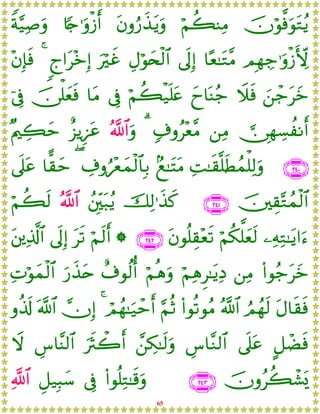 يُتَوَفَّوْنَ مِنكُمْ وَيَذَرُونَ أَزْوَٰجًا وَصِيَّةً
لِّأَزْوَٰجِهِم مَّتَـٰعًا إِلَى ٱلْحَوْلِ غَيْرَ إِخْرَاجٍ ۚ فَإِنْ
خَرَجْنَ فَلَا جُنَاحَ عَلَيْكُمْ فِى مَا فَعَلْنَ فِىٓ
أَنفُسِهِنَّ مِن مَّعْرُوفٍ ۗ وَٱللَّهُ عَزِيزٌ حَكِيمٌ
﴿٢٤٠﴾ وَلِلْمُطَلَّقَـٰتِ مَتَـٰعٌۢ بِٱلْمَعْرُوفِ ۖ حَقًّا عَلَى
ٱلْمُتَّقِينَ ﴿٢٤١﴾ كَذَٰلِكَ يُبَيِّنُ ٱللَّهُ لَكُمْ
ءَايَـٰتِهِۦ لَعَلَّكُمْ تَعْقِلُونَ ﴿٢٤٢﴾ ۞ أَلَمْ تَرَ إِلَى ٱلَّذِينَ
خَرَجُوا۟ مِن دِيَـٰرِهِمْ وَهُمْ أُلُوفٌ حَذَرَ ٱلْمَوْتِ
فَقَالَ لَهُمُ ٱللَّهُ مُوتُوا۟ ثُمَّ أَحْيَـٰهُمْ ۚ إِنَّ ٱللَّهَ لَذُو
فَضْلٍ عَلَى ٱلنَّاسِ وَلَـٰكِنَّ أَكْثَرَ ٱلنَّاسِ لَا
يَشْكُرُونَ ﴿٢٤٣﴾ وَقَـٰتِلُوا۟ فِى سَبِيلِ ٱللَّهِ
65